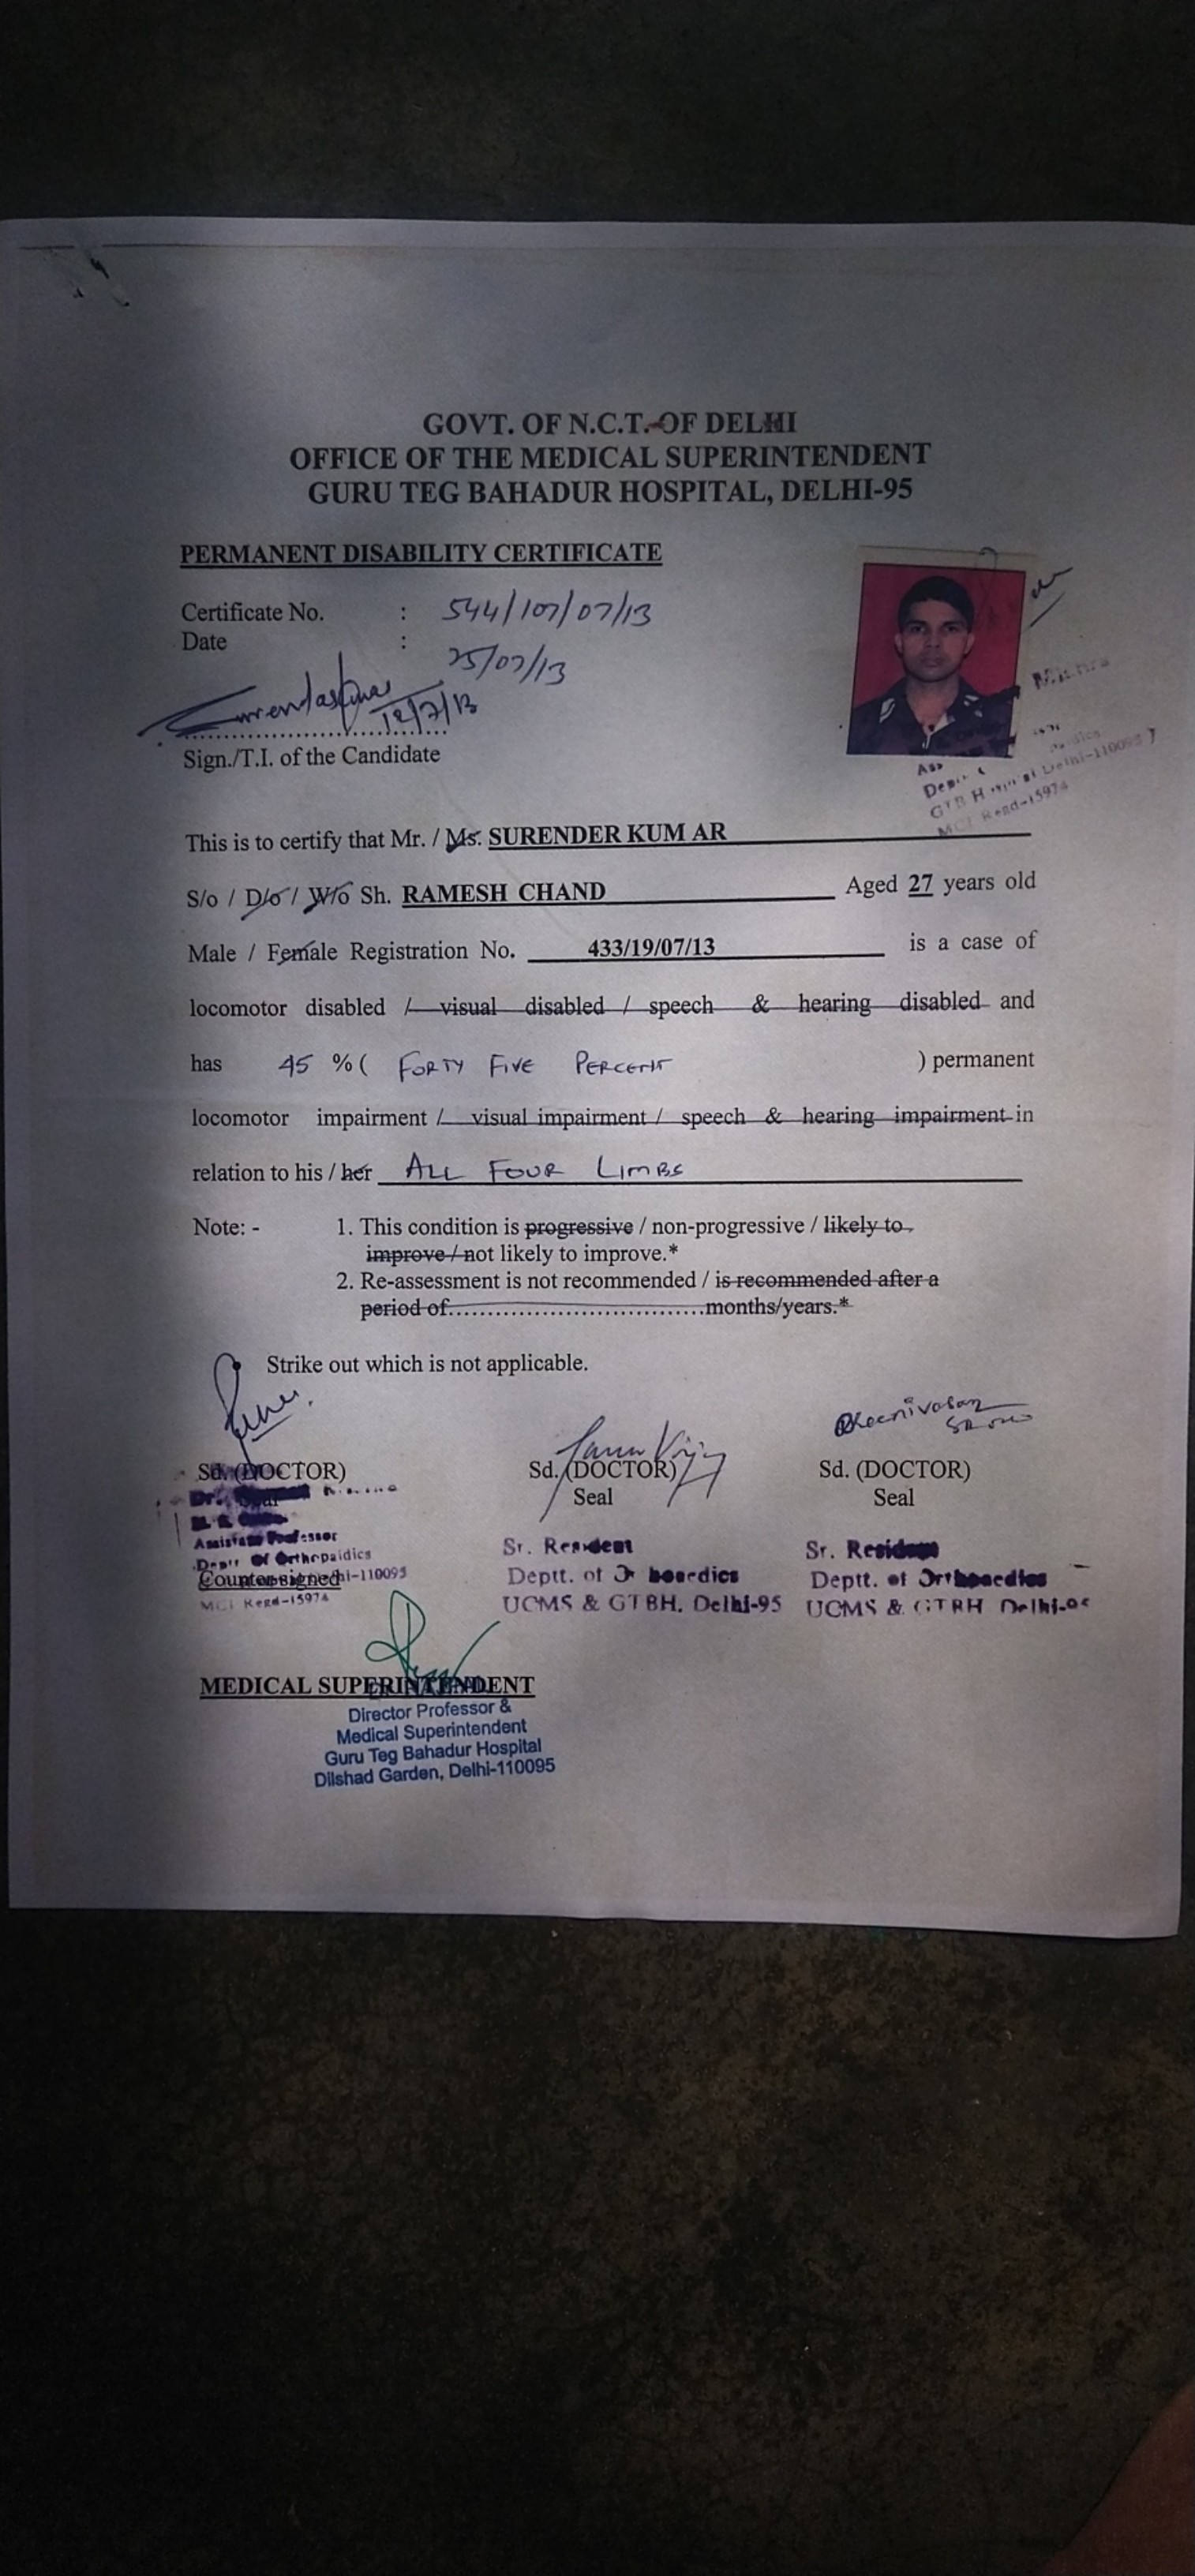 GOVT. OF N.C.T. OF DELHI
OFFICE OF THE MEDICAL SUPERINTENDENT
GURU TEG BAHADUR HOSPITAL, DELHI-95
PERMANENT DISABILITY CERTIFICATE
Certificate No. : 544/107/07/13
Date : 25/07/13
12/7/13
Sign./T.I. of the Candidate
Mishra
GTB Delhi-110095
MCI Regd-15974
This is to certify that Mr. / Ms. SURENDER KUM AR
S/o / D/o / W/o Sh. RAMESH CHAND Aged 27 years old
Male / Female Registration No. 433/19/07/13 is a case of
locomotor disabled / visual disabled / speech & hearing disabled and
has 45 % ( FORTY FIVE PERCENT ) permanent
locomotor impairment / visual impairment / speech & hearing impairment in
relation to his / her ALL FOUR LIMBS
Note: - 1. This condition is progressive / non-progressive / likely to
improve / not likely to improve.*
2. Re-assessment is not recommended / is recommended after a
period of....................................months/years.*
Strike out which is not applicable.
Sd. (DOCTOR) Sd. (DOCTOR) Sd. (DOCTOR)
Seal Seal Seal
Dr.
Assistant Professor
Deptt Of Orthopaidics
Countersigned
-110095
MCI Regd-15974
Sr. Resident
Deptt. of
UCMS & GTBH, Delhi-95
Sr. Resident
Deptt. of Orthopaedics
UCMS & GTBH Delhi-95
MEDICAL SUPERINTENDENT
Director Professor &
Medical Superintendent
Guru Teg Bahadur Hospital
Dilshad Garden, Delhi-110095